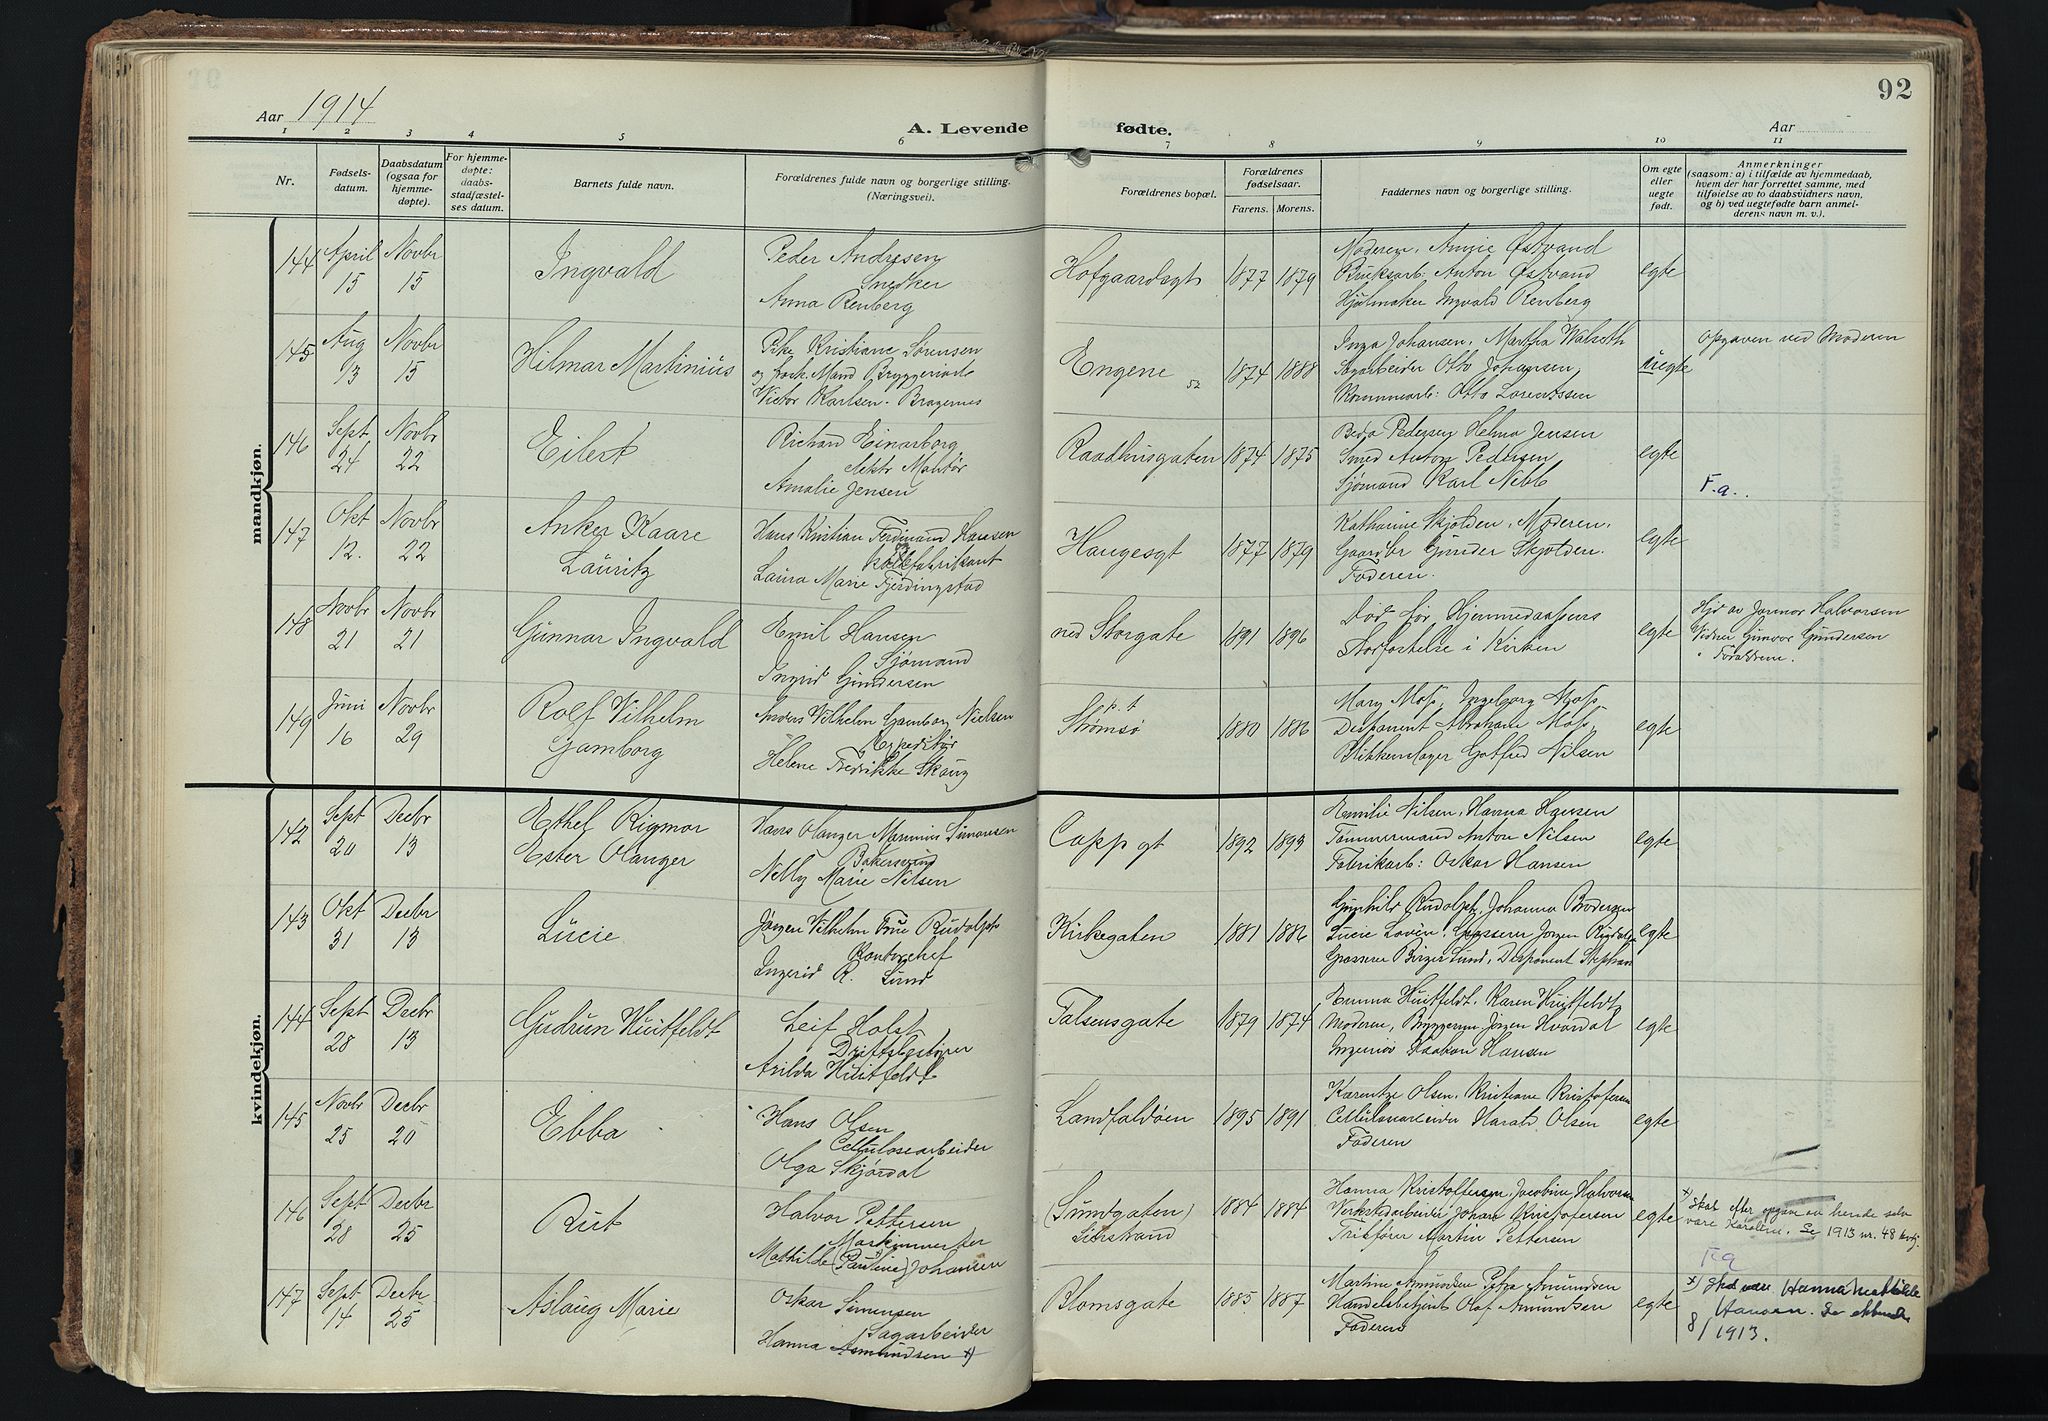 92
Aar 1914
A. Levende fødte.
Aar
1 2 3 4 5 6 7 8 9 10 11
Nr.
Fødsels-
datum.
Daabsdatum
(ogsaa for
hjemme-
døpte).
For hjemme-
døpte:
daabs-
stadfæstel-
ses datum.
Barnets fulde navn.
Forældrenes fulde navn og borgerlige stilling.
(Næringsvei).
Forældrenes bopæl.
Forældrenes
fødselsaar.
Farens. Morens.
Faddernes navn og borgerlige stilling.
Om egte
eller
uegte
født.
Anmerkninger
(saasom: a) i tilfælde av hjemmedaab,
hvem der har forrettet samme, med
tilføielse av to daabsvidners navn,
og b) ved uegtefødte barn anmel-
derens navn m. v.).
mandkjøn.
144
April
15
Novbr
15
Ingvald
Peder Andresen
Snedker
Anna Renberg
Hofgaardsgt
1877 1879
Moderen, Annie Østvand
Bruksarb: Anton Østvand
Hjulmaker Ingvald Renberg
egte
145
Aug
13
Novbr
15
Hilmar Martinius
Pike Kristiane Sørensen
og fork. Mand Bryggeriarb
Victor Karlsen. Bragernes
Engene 52
1874 1888
Inga Johansen, Martha Walseth
Sagarbeider Otto Johansen,
Kommunearb: Otto Lorentssen
uegte
Opgaven ved Moderen
146
Sept
24
Novbr
22
Eilert
Richard Einarborg
Elektr Montør
Amalie Jensen
Raadhusgaten
1874 1875
Pedersen Helma Jensen
Smed Anton Pedersen
Sjømand Karl
egte
F.a..
147
Okt
12.
Novbr
22
Anker Kaare
Lauritz
Hans Kristian Ferdinand Hansen
fabrikant
Laura Marie Fjerdingstad
Haugesgt
1877 1879
Katharine Skjolden, Moderen,
Gaardbr Gunder Skjolden.
Faderen.
egte
148
Novbr
21
Novbr
21
Gunnar Ingvald
Emil Hansen
Sjømand
Ingrid Gundersen
ned Storgate
1891 1896
Død før Hjemmedaabens
Stadfæstelse i Kirken
egte
Hjd av Jormor Halvorsen
Vidner Gunvor Gundersen
" Forældrene.
149
Juni
16
Novbr
29
Rolf Vilhelm
Gamborg
Anders Vilhelm Gamborg Nielsen
Expeditør
Helene Fredrikke Skaug
p.t
Strømsø
1880 1886
Mary Moss, Ingeborg Moss,
Disponent Abraham Moss,
Blikkenslager Gotfred Nilsen
egte
kvindekjøn.
142
Sept
20
Decbr
13
Ethel Rigmor
Ester Olanger
Hans Olanger Simonsen
Bakersvend
Nelly Marie Nilsen
Cappgt
1892 1893
Emilie Nilsen, Hanna Hansen
Tømmermand Anton Nilsen
Fabrikarb: Oskar Hansen
egte
143
Okt
31
Decbr
13
Lucie
Jørgen Vilhelm Rudolph
Kontorchef
Ingerid R. Lund
Kirkegaten
1881 1886
Gunhild Rudolph, Johanna Brodersen
Lucie Lovén, Grosserer Jørgen Rudolph
Grosserer Birger Lund, Disponent Stephan
egte
144
Sept
28
Decbr
13
Gudrun Huitfeldt
Leif Holst
Driftsbestyrer
Arilda Huitfeldt
Falsensgate
1879 1874
Emma Huitfeldt, Karen Huitfeldt,
Moderen, Jørgen Hvardal
Ingeniør Haakon Hansen
egte
145
Novbr
25
Decbr
20
Ebba
Hans Olsen
Cellulosearbeider
Olga Skjørdal
Landfaldøen
1895 1891
Karentze Olsen, Kristiane Kristofersen
Cellulosearbeider Harald Olsen
Faderen
egte
146
Sept
28
Decbr
25
Rut
Halvor Pettersen
Maskinmester
Mathilde (Pauline) Johansen
(Sundgaten)
Lierstrand
1884 1884
Hanna Kristoffersen, Jacobine Halvorsen
Verkstedarbeider Johan Kristofersen
Martin Pettersen
egte
x) Skal efter opgav av hende selv
være Karoline. Se 1913 nr. 48 kvkj.
F.a
147
Sept
14
Decbr
25
Aslaug Marie
Oskar Simensen
Sagarbeider
Hanna Asmundsen x)
Blomsgate
1885 1887
Martine Amundsen Petra Amundsen
Handelsbetjent Olaf Amundsen
Faderen
egte
x) Skal være Hanna Mathilde
Hansen. Se
8/1913.